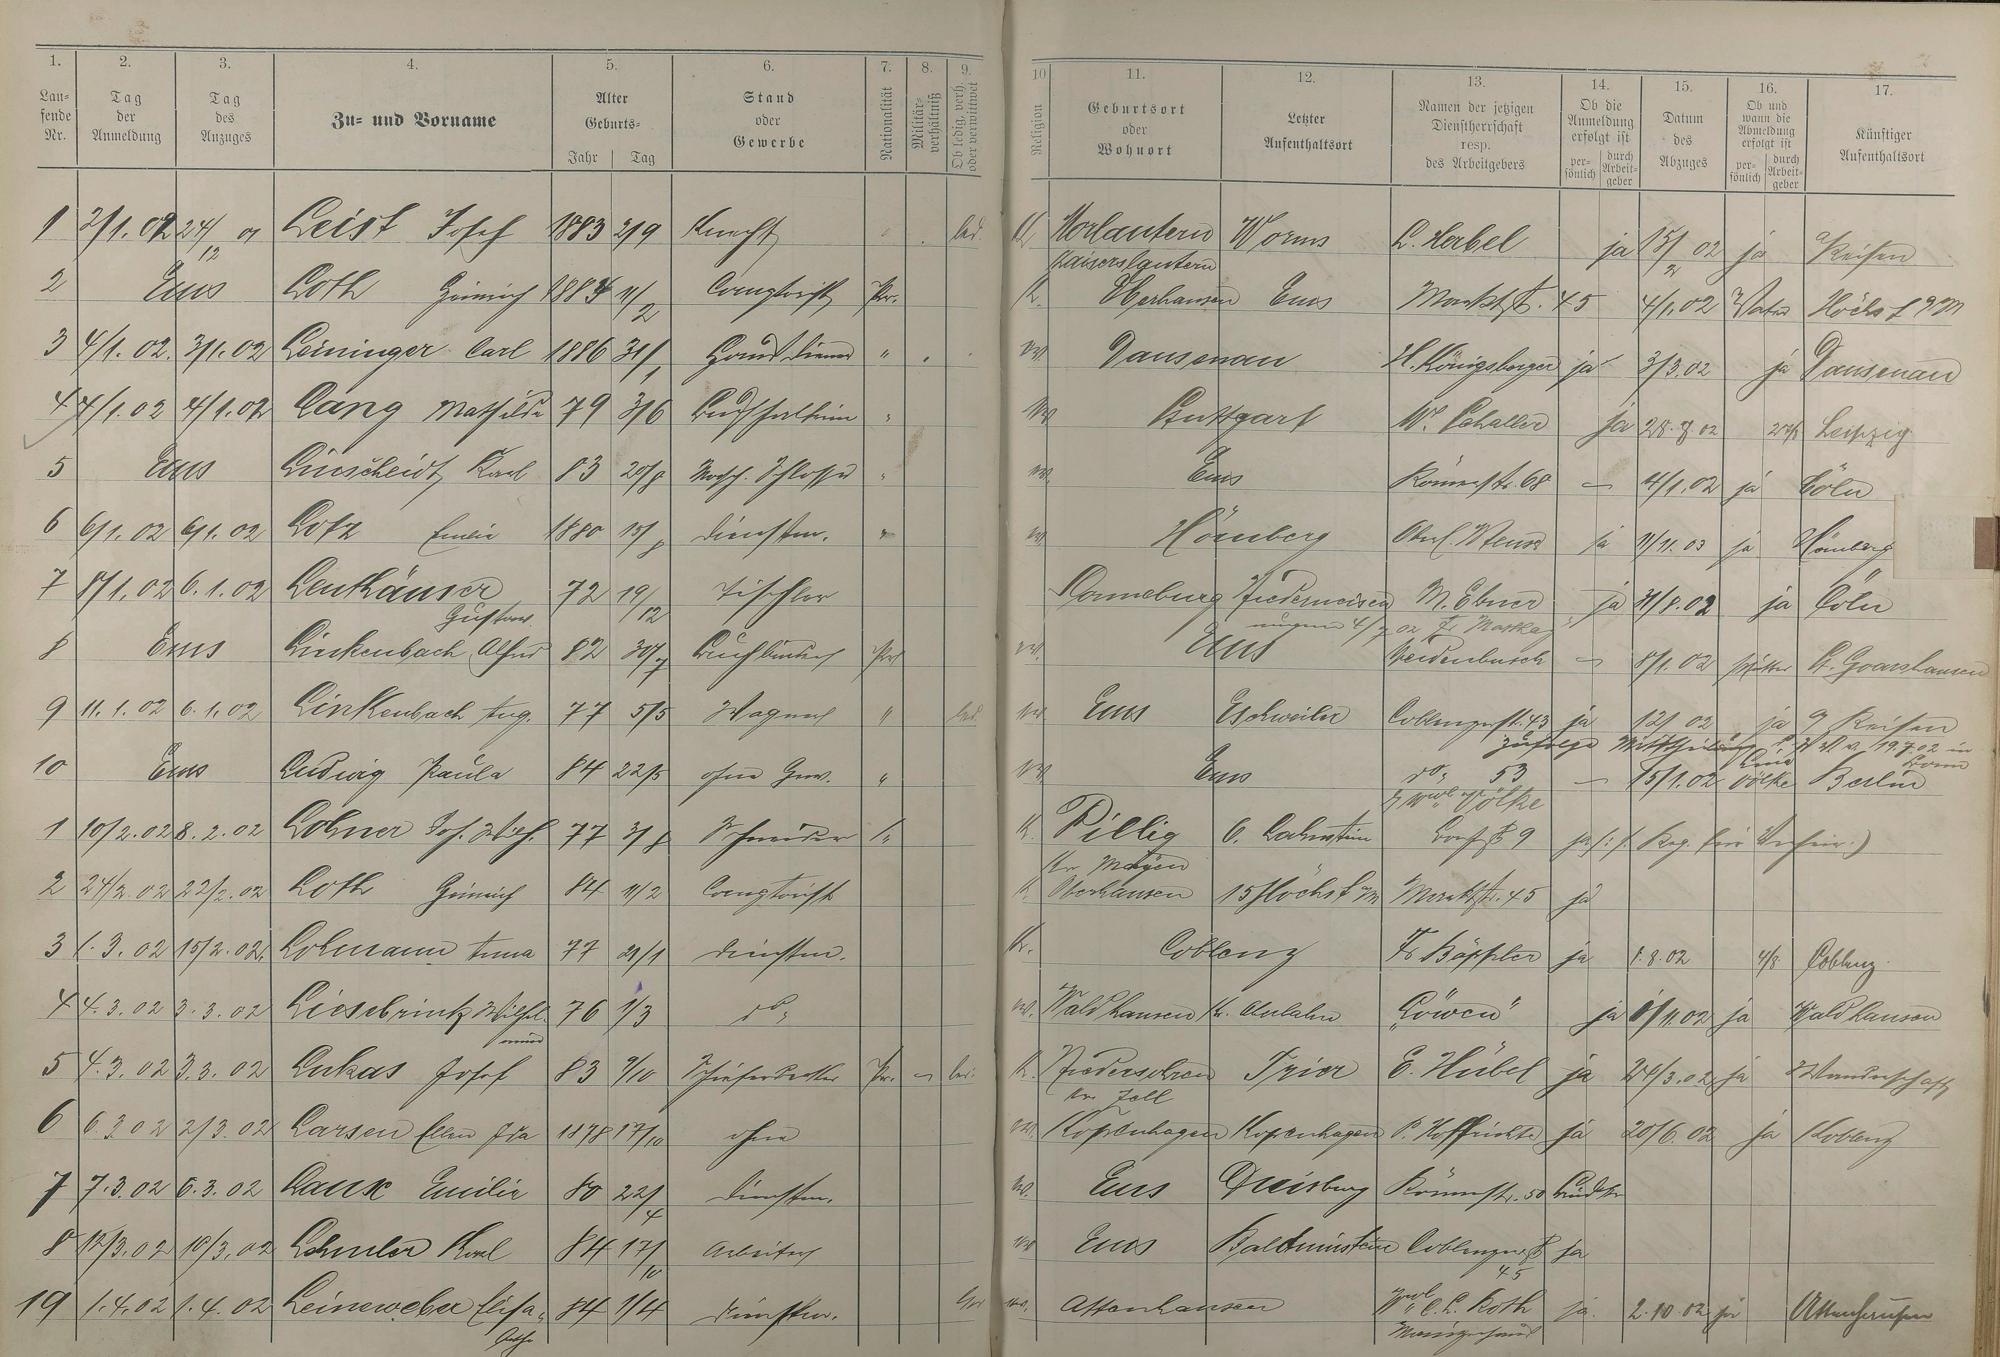 1. 2. 3. 4. 5. 6. 7. 8. 9. 10 11. 12. 13. 14. 15. 16. 17.
Lau-
fende
Nr.
Tag
der
Anmeldung
Tag
des
Anzuges
Zu- und Vorname
Alter
Geburts-
Jahr Tag
Stand
oder
Gewerbe
Nationalität
Militär-
verhältniß
Ob ledig, verh.
oder verwittwet
Religion
Geburtsort
oder
Wohnort
Letzter
Aufenthaltsort
Namen der jetzigen
Dienstherrschaft
resp.
des Arbeitgebers
Ob die
Anmeldung
erfolgt ist
per-
sönlich
durch
Arbeit-
geber
Datum
des
Abzuges
Ob und
wann die
Abmeldung
erfolgt ist
per-
sönlich
durch
Arbeit-
geber
Künftiger
Aufenthaltsort
1 2/1. 02 24/12 01 Leist Josef 1883 2/9 Knecht led. K. Morlautern Worms L. Herbel ja 15/2 02 ja a/Reisen
Kaiserslautern
2 Ems Loth Heinrich 1884 11/2 Comptorist Pr. K. Oberhausen Ems Marktstr. 45 4/1. 02 Vater Höchst a/M
3 4/1. 02. 3/1. 02 Leininger Carl 1886 31/1 Hausdiener " ev. Dausenau H. Königsberger ja 3/3. 02 ja Dausenau
4 4/1. 02 4/1. 02 Lang Mathilde 79 3/6 Buchhalterin " ev. Stuttgart Schaller ja 28. 02 Leipzig
5 Ems Linscheidt Karl 83 20/8 Masch. Schlosser " ev. Ems Römerstr. 68 – 4/1. 02 ja Cöln
6 6/1. 02 6/1. 02 Lotz Emilie 1880 15/8 Dienstm. " ev. Hömberg ja 11/11. 03 ja Hömberg
7 8/1. 02 6. 1. 02 Leuthäuser 72 19/12 Tischler Ronneburg Niederneisen M. Ebner ja 31/8. 02 ja Cöln
Gustav
8 Ems Linkenbach Alfred 82 30/7 Buchbinder Pr ev. Ems Weidenbusch – 8/1. 02 Mutter St. Goarshausen
9 11. 1. 02 6. 1. 02 Linkenbach Aug. 77 5/5 Wagner " led. ev. Ems Eschweiler Coblenzerstr. 43 ja 12/ 02 ja a/ Reisen
zufolge Mittheilung 19.7.02 in
10 Ems Ludwig Paula 84 22/5 ohne Gew. " ev. Ems do. 53 – 15/1. 02 Völke Berlin
Völke
1 10/2. 02 8. 2. 02 Lohner Joh. Wilh. 77 3/8 Schneider K. Pillig O. Lahnstein 9 ja
Kr. Mayen
2 24/2. 02 22/2. 02 Loth Heinrich 84 11/2 Comptorist K. Oberhausen Höchst a/M Marktstr. 45 ja
3 1. 3. 02 15/2. 02. Lohmann Anna 77 21/1 Dienstm. K. Coblenz ja 1. 8. 02 4/8. Coblenz
4 4. 3. 02 3. 3. 02 Liesebrink Wilhel- 76 1/3 do. ev. Waldhausen "Löwen" ja 1/11. 02 ja Waldhausen
mine
5 4. 3. 02 3. 3. 02 Lukas Josef 83 9/10 Schieferdecker Pr. – led. K. Trier E. Hübel ja 24/3. 02 ja Wanderschaft
Kr. Zell
6 6 3 02 2/3. 02 Larsen Ellen Ida 1878 17/10 ohne ev. Kopenhagen Kopenhagen P. Hoffrichter ja 20/6. 02 ja Koblenz
7 7. 3. 02 6. 3. 02 Lauk Emilie 80 22/4 Dienstm. ev. Ems Duisburg Römerstr. 50 Bruder
8 12/3. 02 10/3. 02 Karl 84 17/10 Arbeiter ev Ems Balduinstein Coblenzerstr ja
45
19 1. 4. 02 1. 4. 02 Leineweber Elisa- 84 1/4 Dienstm. ev. Attenhausen Roth ja. 2. 10. 02 ja Attenhausen
beth